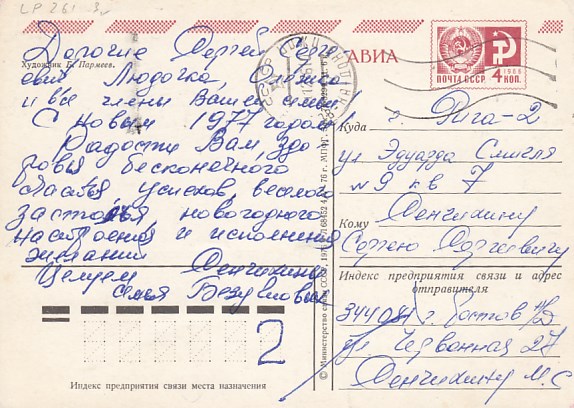 LP 261
Дорогие Сергей Серге
евич Людочка,
и все члены Вашей семьи
С новым 1977 годом!
Радости Вам, здо
ровья бесконечного
счастья успехов, веселого
застолья, новогоднего
настроения и исполнения
желаний
Целуем Фенчихины
семья
Художник Б. Пармеев.
АВИА
ПОЧТА СССР
1966
4 КОП.
Куда г. Рига-2
ул Эдуарда Смилгя
№ 9 кв 7
Кому Фенчихину
Сергею Сергеевичу
Индекс предприятия связи и адрес
отправителя
344081 г. Ростов н/Д
ул Червонная 27
Фенчихину М. С
2
Индекс предприятия связи места назначения
© Министерство связи СССР. 197